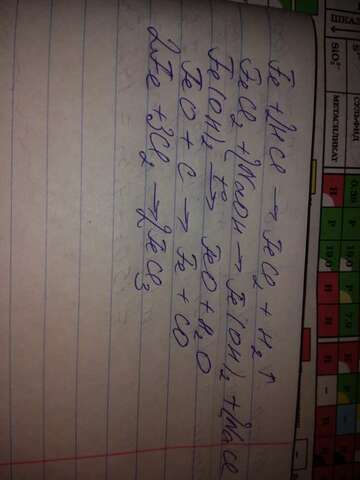 Fe + 2HCl → FeCl₂ + H₂↑
FeCl₂ + 2NaOH → Fe(OH)₂ + 2NaCl
Fe(OH)₂ t°→ FeO + H₂O
FeO + C → Fe + CO
2Fe + 3Cl₂ → 2FeCl₃
SiO₃²⁻
МЕТАСИЛИКАТ